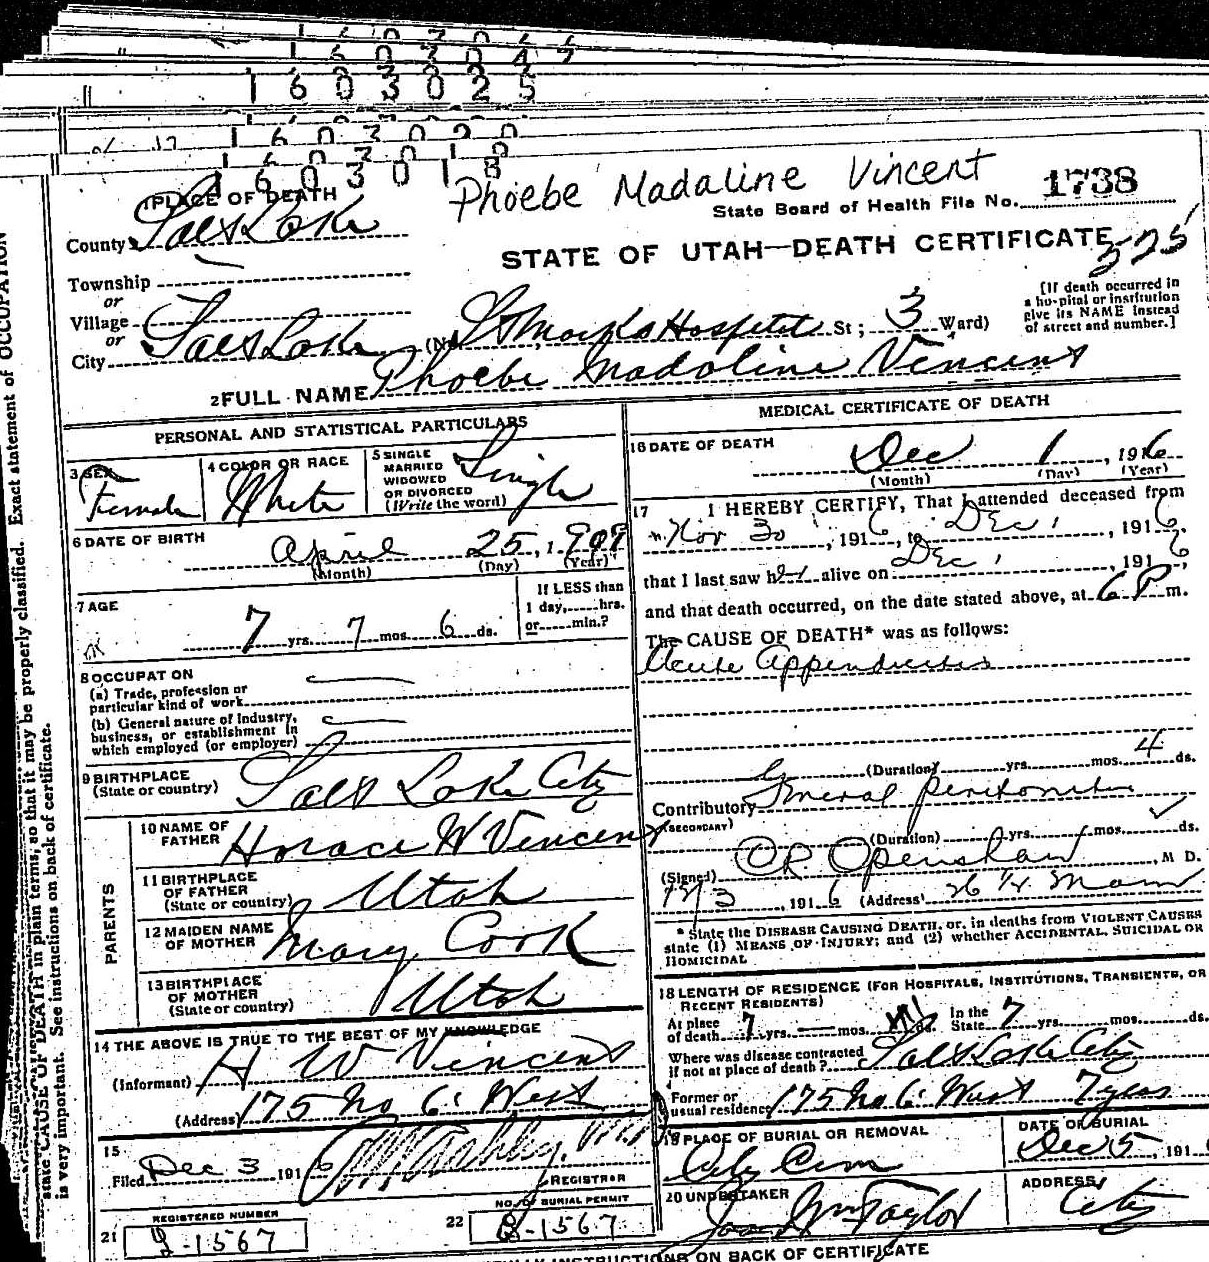 1603025
16030
1603018
Phoebe Madaline Vincent
1738
State Board of Health File No.
PLACE OF DEATH
County Salt Lake
STATE OF UTAH—DEATH CERTIFICATE
575
Township
or
Village
or
City Salt Lake (No. St Marks Hospital St; 3 Ward)
[If death occurred in
a hospital or institution
give its NAME instead
of street and number.]
2 FULL NAME Phoebe Madaline Vincent
PERSONAL AND STATISTICAL PARTICULARS
3 SEX
Female
4 COLOR OR RACE
White
5 SINGLE
MARRIED
WIDOWED
OR DIVORCED
(Write the word)
Single
6 DATE OF BIRTH
April 25, 1909
(Month) (Day) (Year)
7 AGE
7 yrs. 7 mos. 6 ds.
If LESS than
1 day,.....hrs.
or.....min.?
8 OCCUPATION
(a) Trade, profession or
particular kind of work
(b) General nature of Industry,
business, or establishment in
which employed (or employer)
9 BIRTHPLACE
(State or country)
Salt Lake City
PARENTS
10 NAME OF
FATHER
Horace W Vincent
11 BIRTHPLACE
OF FATHER
(State or country)
Utah
12 MAIDEN NAME
OF MOTHER
Mary Cook
13 BIRTHPLACE
OF MOTHER
(State or country)
Utah
14 THE ABOVE IS TRUE TO THE BEST OF MY KNOWLEDGE
(Informant) H W Vincent
(Address) 175 No 6' West
15
Filed Dec 3 1916
REGISTRAR
21 REGISTERED NUMBER
-1567
22 NO. OF BURIAL PERMIT
-1567
MEDICAL CERTIFICATE OF DEATH
16 DATE OF DEATH
Dec 1, 1916
(Month) (Day) (Year)
17 I HEREBY CERTIFY, That I attended deceased from
Nov 30, 1916, to Dec 1, 1916,
that I last saw her alive on Dec 1, 1916,
and that death occurred, on the date stated above, at 6 P m.
The CAUSE OF DEATH* was as follows:
Acute Appendicitis
(Duration) yrs. mos. 4 ds.
Contributory General peritonitis
(SECONDARY)
(Duration) yrs. mos. ds.
(Signed) Openshaw, M D.
12/3, 1916 (Address) Main
* State the DISEASE CAUSING DEATH, or, in deaths from VIOLENT CAUSES
state (1) MEANS OF INJURY; and (2) whether ACCIDENTAL, SUICIDAL OR
HOMICIDAL
18 LENGTH OF RESIDENCE (FOR HOSPITALS, INSTITUTIONS, TRANSIENTS, OR
RECENT RESIDENTS)
At place
of death 7 yrs. mos. ds. In the
State 7 yrs. mos. ds.
Where was disease contracted
if not at place of death? Salt Lake City
Former or
usual residence 175 No 6' West 7 years
19 PLACE OF BURIAL OR REMOVAL
City Cem
DATE OF BURIAL
Dec 5, 191
20 UNDERTAKER
Taylor
ADDRESS
City
INSTRUCTIONS ON BACK OF CERTIFICATE
state CAUSE OF DEATH in plain terms, so that it may be properly classified. Exact statement of OCCUPATION
is very important. See instructions on back of certificate.